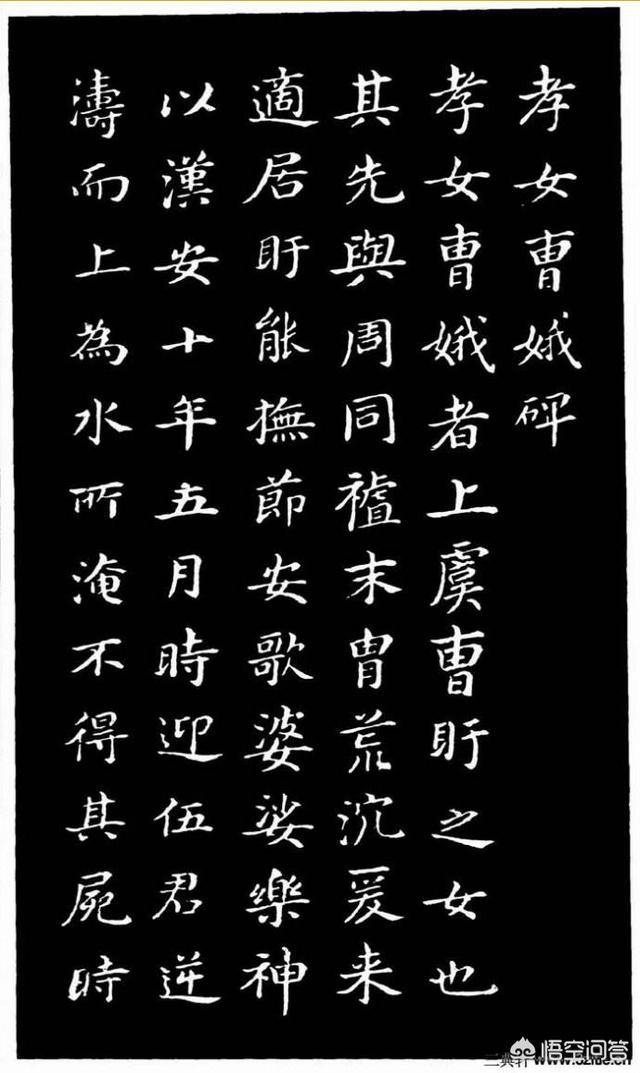 孝女曺娥碑
孝女曺娥者上虞曺盱之女也
其先與周同禇末胄荒沉爰来
適居盱能撫節安歌婆娑樂神
以漢安十年五月時迎伍君逆
濤而上為水所淹不得其屍時
悟空问答